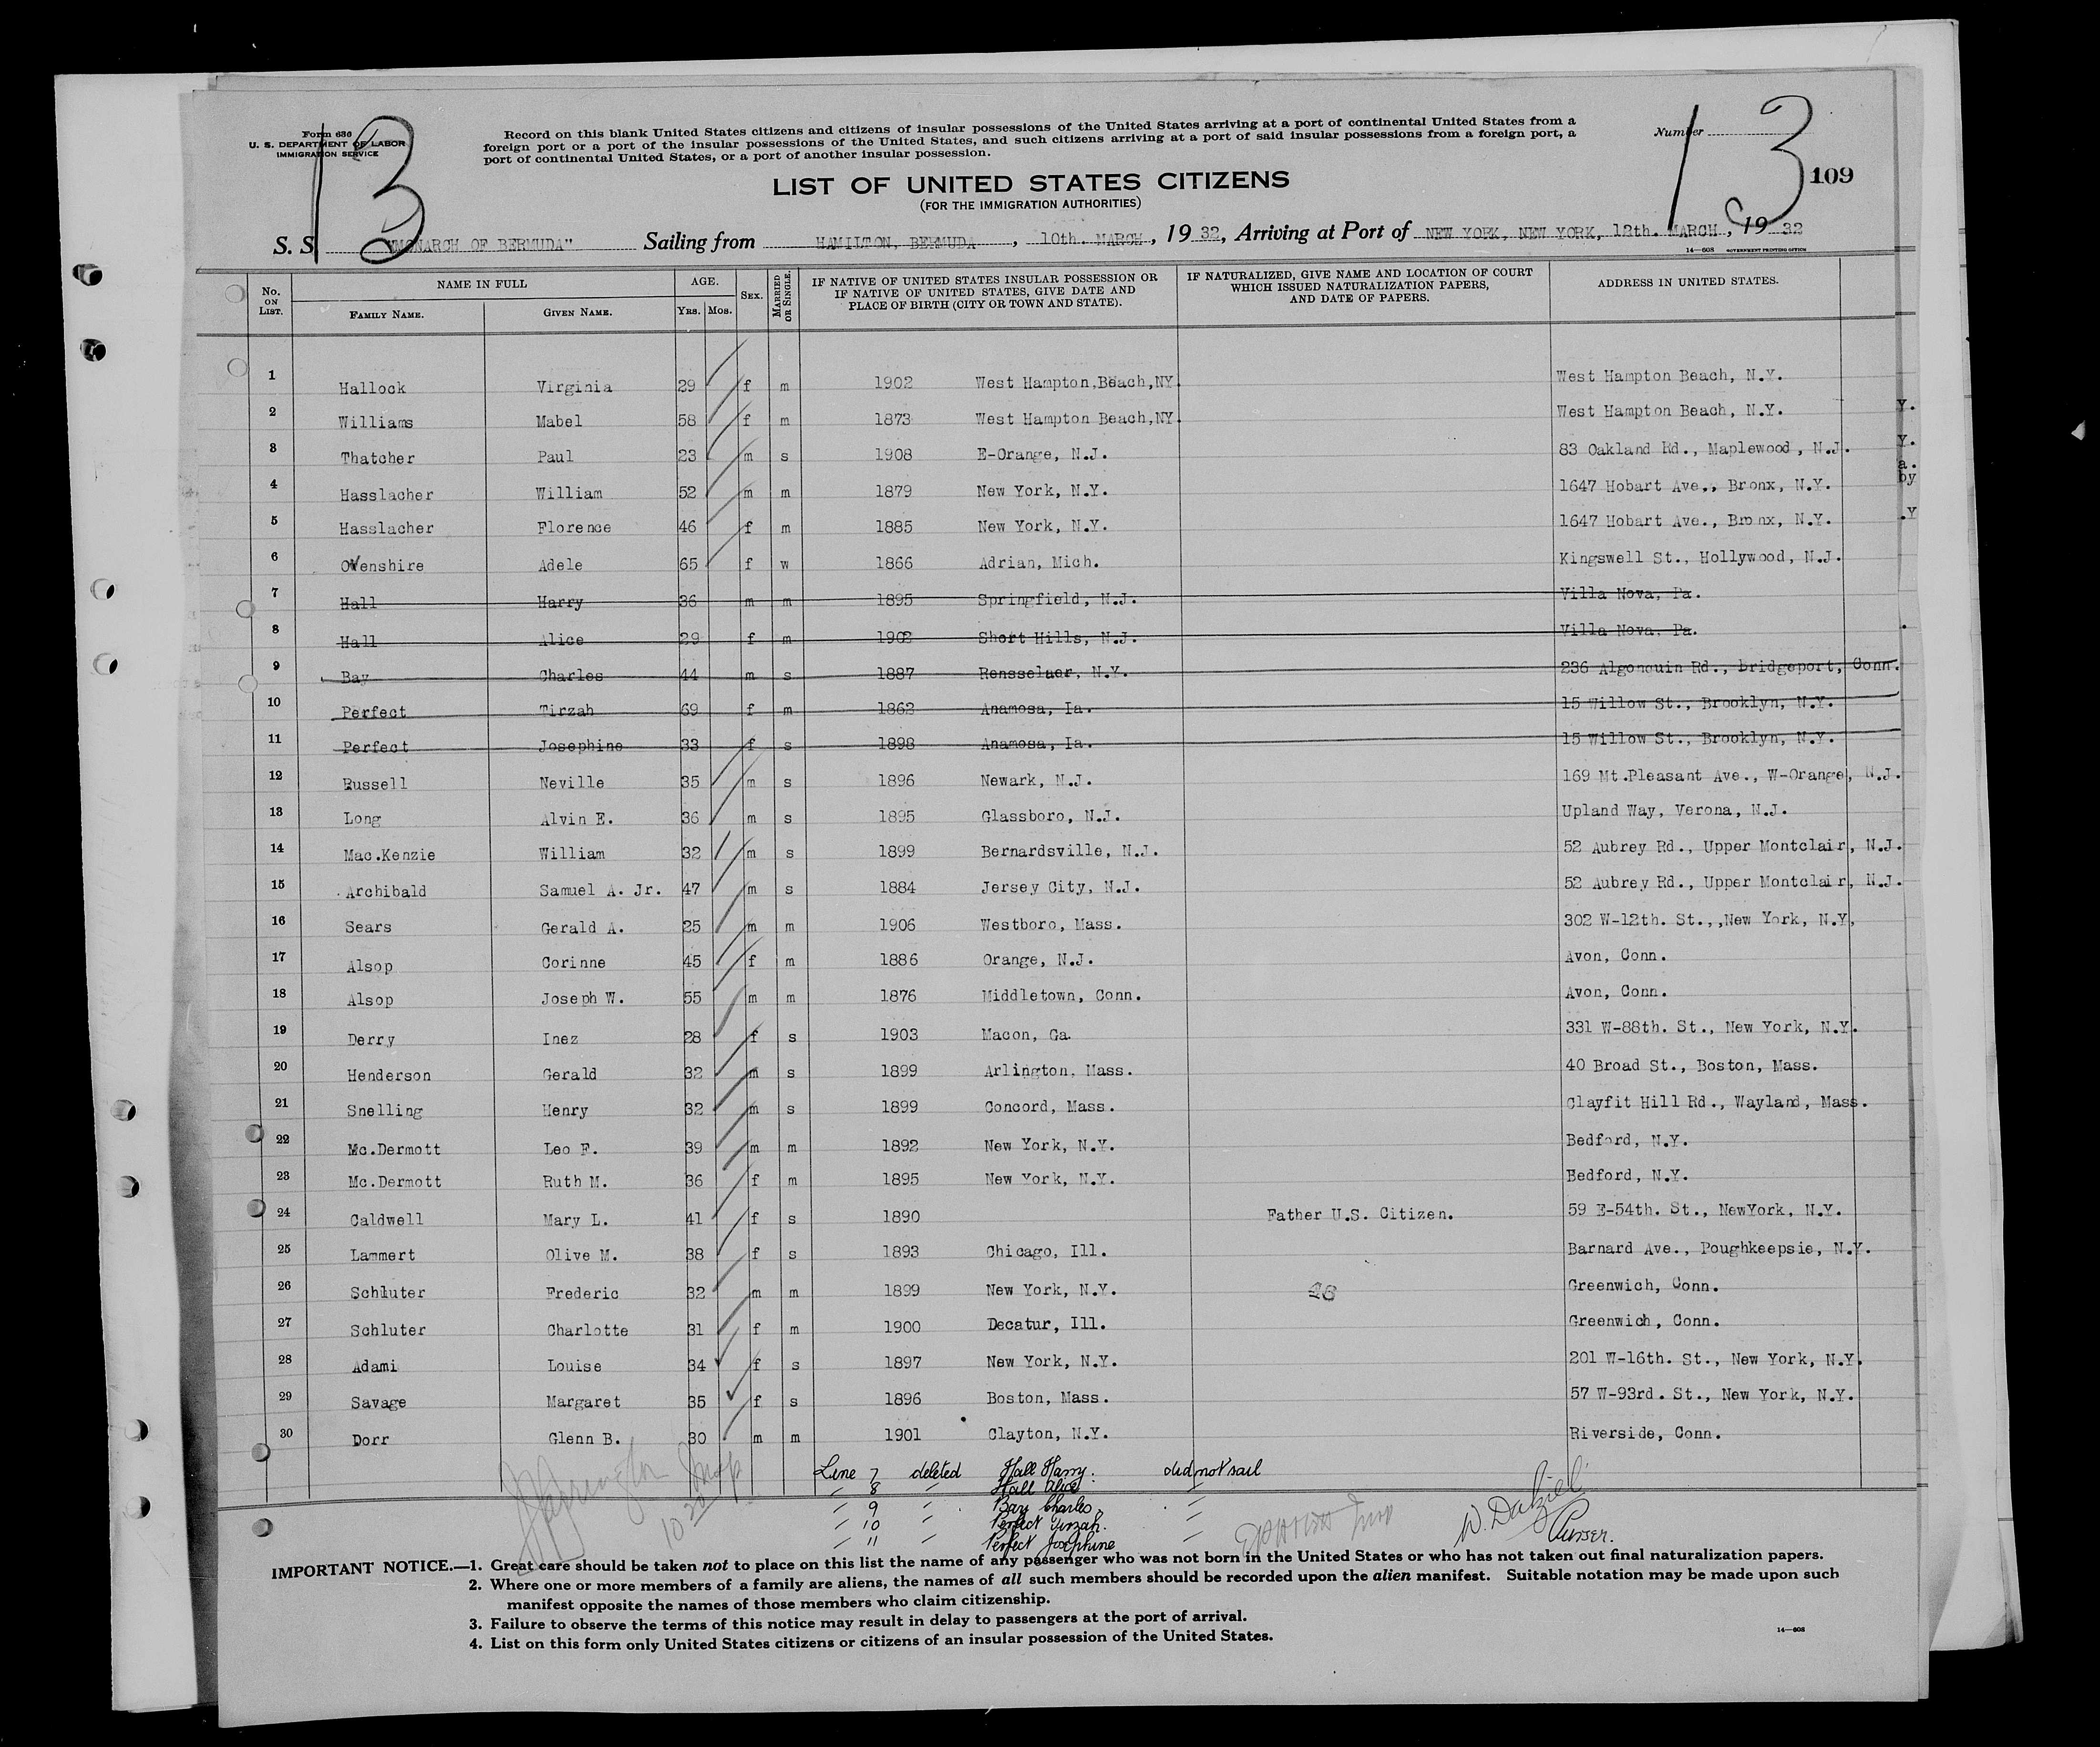 Form 630
U. S. DEPARTMENT OF LABOR
IMMIGRATION SERVICE
13
Record on this blank United States citizens and citizens of insular possessions of the United States arriving at a port of continental United States from a
foreign port or a port of the insular possessions of the United States, and such citizens arriving at a port of said insular possessions from a foreign port, a
port of continental United States, or a port of another insular possession.
Number
13
109
LIST OF UNITED STATES CITIZENS
(FOR THE IMMIGRATION AUTHORITIES)
S. S. "MONARCH OF BERMUDA" Sailing from HAMILTON, BERMUDA, 10th. MARCH, 19 32, Arriving at Port of NEW YORK, NEW YORK, 12th. MARCH, 19 32
14—608 GOVERNMENT PRINTING OFFICE
No. ON LIST. NAME IN FULL AGE. SEX. MARRIED OR SINGLE. IF NATIVE OF UNITED STATES INSULAR POSSESSION OR IF NATIVE OF UNITED STATES, GIVE DATE AND PLACE OF BIRTH (CITY OR TOWN AND STATE). IF NATURALIZED, GIVE NAME AND LOCATION OF COURT WHICH ISSUED NATURALIZATION PAPERS, AND DATE OF PAPERS. ADDRESS IN UNITED STATES.
FAMILY NAME. GIVEN NAME. YRS. MOS.
1 Hallock Virginia 29 f m 1902 West Hampton,Beach,NY. West Hampton Beach, N.Y.
2 Williams Mabel 58 f m 1873 West Hampton Beach,NY. West Hampton Beach, N.Y.
3 Thatcher Paul 23 m s 1908 E-Orange, N.J. 83 Oakland Rd., Maplewood, N.J.
4 Hasslacher William 52 m m 1879 New York, N.Y. 1647 Hobart Ave., Bronx, N.Y.
5 Hasslacher Florence 46 f m 1885 New York, N.Y. 1647 Hobart Ave., Bronx, N.Y.
6 Ovenshire Adele 65 f w 1866 Adrian, Mich. Kingswell St., Hollywood, N.J.
7 Hall Harry 36 m m 1895 Springfield, N.J. Villa Nova, Pa.
8 Hall Alice 29 f m 1902 Short Hills, N.J. Villa Nova, Pa.
9 Bay Charles 44 m s 1887 Rensselaer, N.Y. 236 Algonquin Rd., Bridgeport, Conn.
10 Perfect Tirzah 69 f m 1862 Anamosa, Ia. 15 Willow St., Brooklyn, N.Y.
11 Perfect Josephine 33 f s 1898 Anamosa, Ia. 15 Willow St., Brooklyn, N.Y.
12 Russell Neville 35 m s 1896 Newark, N.J. 169 Mt.Pleasant Ave., W-Orange, N.J.
13 Long Alvin E. 36 m s 1895 Glassboro, N.J. Upland Way, Verona, N.J.
14 Mac.Kenzie William 32 m s 1899 Bernardsville, N.J. 52 Aubrey Rd., Upper Montclair, N.J.
15 Archibald Samuel A. Jr. 47 m s 1884 Jersey City, N.J. 52 Aubrey Rd., Upper Montclair, N.J.
16 Sears Gerald A. 25 m m 1906 Westboro, Mass. 302 W-12th. St.,,New York, N.Y.
17 Alsop Corinne 45 f m 1886 Orange, N.J. Avon, Conn.
18 Alsop Joseph W. 55 m m 1876 Middletown, Conn. Avon, Conn.
19 Derry Inez 28 f s 1903 Macon, Ga. 331 W-88th. St., New York, N.Y.
20 Henderson Gerald 32 m s 1899 Arlington, Mass. 40 Broad St., Boston, Mass.
21 Snelling Henry 32 m s 1899 Concord, Mass. Clayfit Hill Rd., Wayland, Mass.
22 Mc.Dermott Leo F. 39 m m 1892 New York, N.Y. Bedford, N.Y.
23 Mc.Dermott Ruth M. 36 f m 1895 New York, N.Y. Bedford, N.Y.
24 Caldwell Mary L. 41 f s 1890 Father U.S. Citizen. 59 E-54th. St., NewYork, N.Y.
25 Lammert Olive M. 38 f s 1893 Chicago, Ill. Barnard Ave., Poughkeepsie, N.Y.
26 Schluter Frederic 32 m m 1899 New York, N.Y. Greenwich, Conn.
27 Schluter Charlotte 31 f m 1900 Decatur, Ill. Greenwich, Conn.
28 Adami Louise 34 f s 1897 New York, N.Y. 201 W-16th. St., New York, N.Y.
29 Savage Margaret 35 f s 1896 Boston, Mass. 57 W-93rd. St., New York, N.Y.
30 Dorr Glenn B. 30 m m 1901 Clayton, N.Y. Riverside, Conn.
Line 7 deleted Hall Harry. did not sail
" 8 " Hall Alice "
" 9 " Bay Charles. "
" 10 " Perfect Tirzah. "
" 11 " Perfect Josephine "
W. Dalziel
Purser.
IMPORTANT NOTICE.—1. Great care should be taken not to place on this list the name of any passenger who was not born in the United States or who has not taken out final naturalization papers.
2. Where one or more members of a family are aliens, the names of all such members should be recorded upon the alien manifest. Suitable notation may be made upon such
manifest opposite the names of those members who claim citizenship.
3. Failure to observe the terms of this notice may result in delay to passengers at the port of arrival.
4. List on this form only United States citizens or citizens of an insular possession of the United States.
14—608